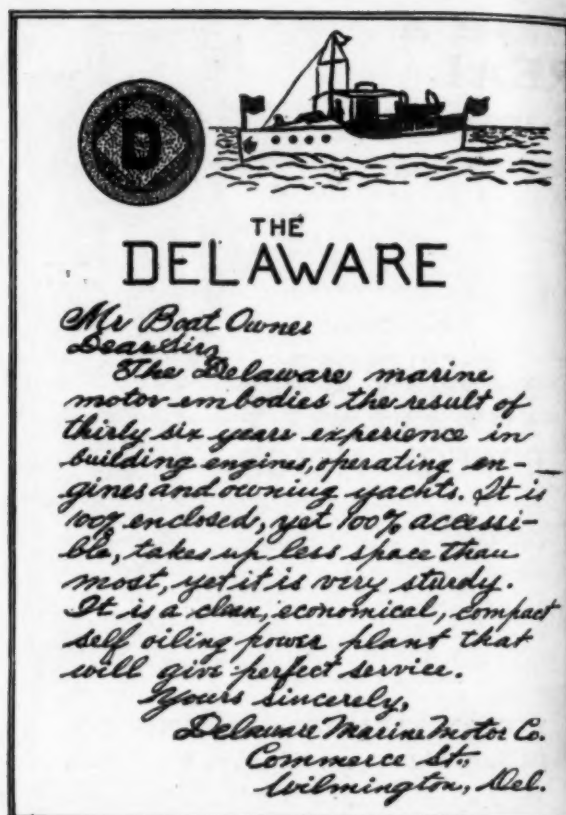 D
THE
DELAWARE
Mr Boat Owner
Dear Sir,
The Delaware marine
motor embodies the result of
thirty six years experience in
building engines, operating en-
gines and owning yachts. It is
100% enclosed, yet 100% accessi-
ble, takes up less space than
most, yet it is very sturdy.
It is a clean, economical, compact
self oiling power plant that
will give perfect service.
Yours sincerely,
Delaware Marine Motor Co.
Commerce St.,
Wilmington, Del.